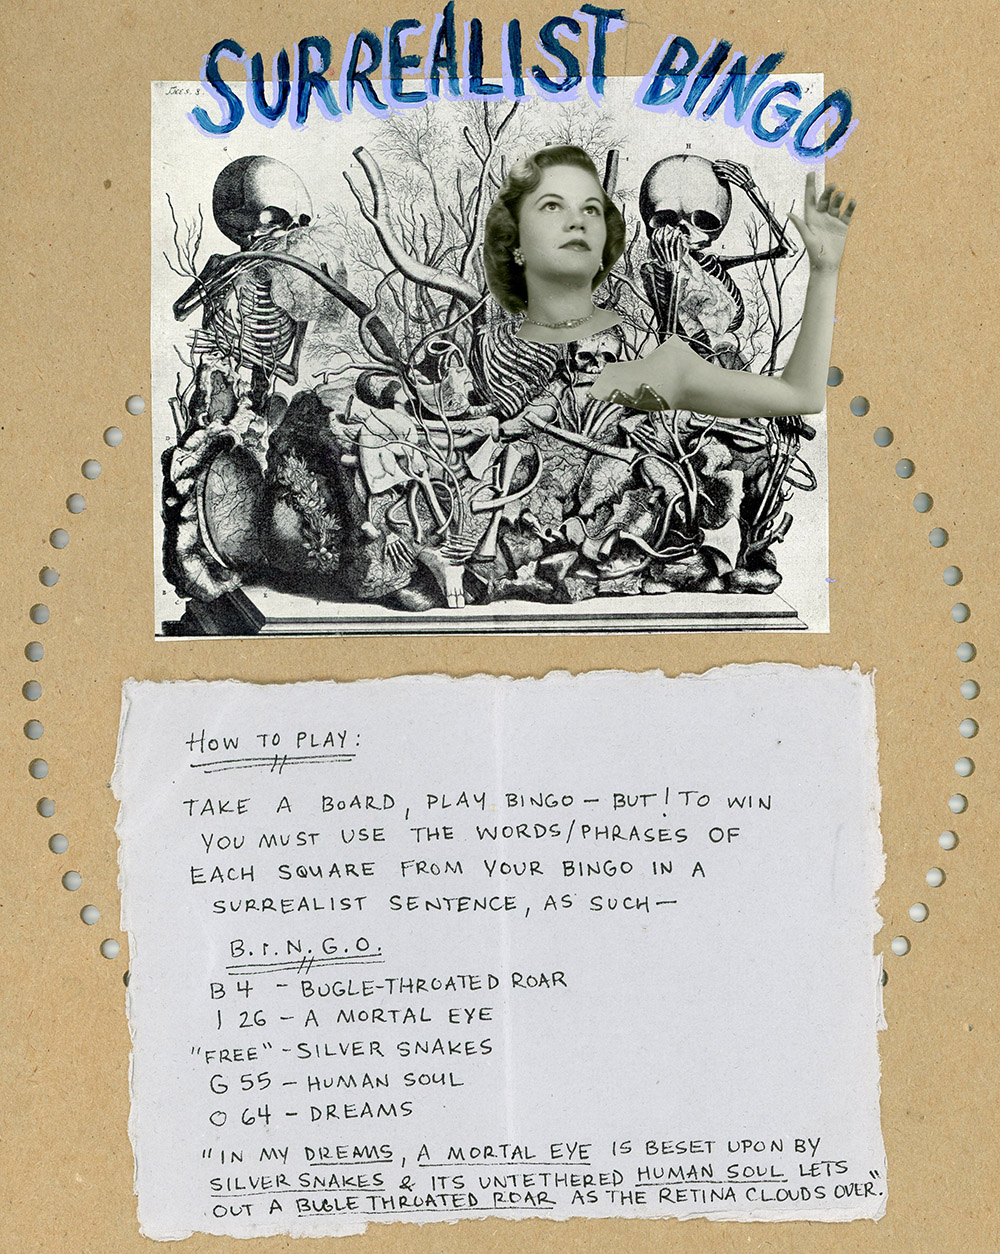 SURREALIST BINGO
HOW TO PLAY:
TAKE A BOARD, PLAY BINGO – BUT! TO WIN
YOU MUST USE THE WORDS/PHRASES OF
EACH SQUARE FROM YOUR BINGO IN A
SURREALIST SENTENCE, AS SUCH –
B.I.N.G.O.
B 4 – BUGLE-THROATED ROAR
I 26 – A MORTAL EYE
"FREE" – SILVER SNAKES
G 55 – HUMAN SOUL
O 64 – DREAMS
"IN MY DREAMS, A MORTAL EYE IS BESET UPON BY
SILVER SNAKES & ITS UNTETHERED HUMAN SOUL LETS
OUT A BUGLE THROATED ROAR AS THE RETINA CLOUDS OVER."